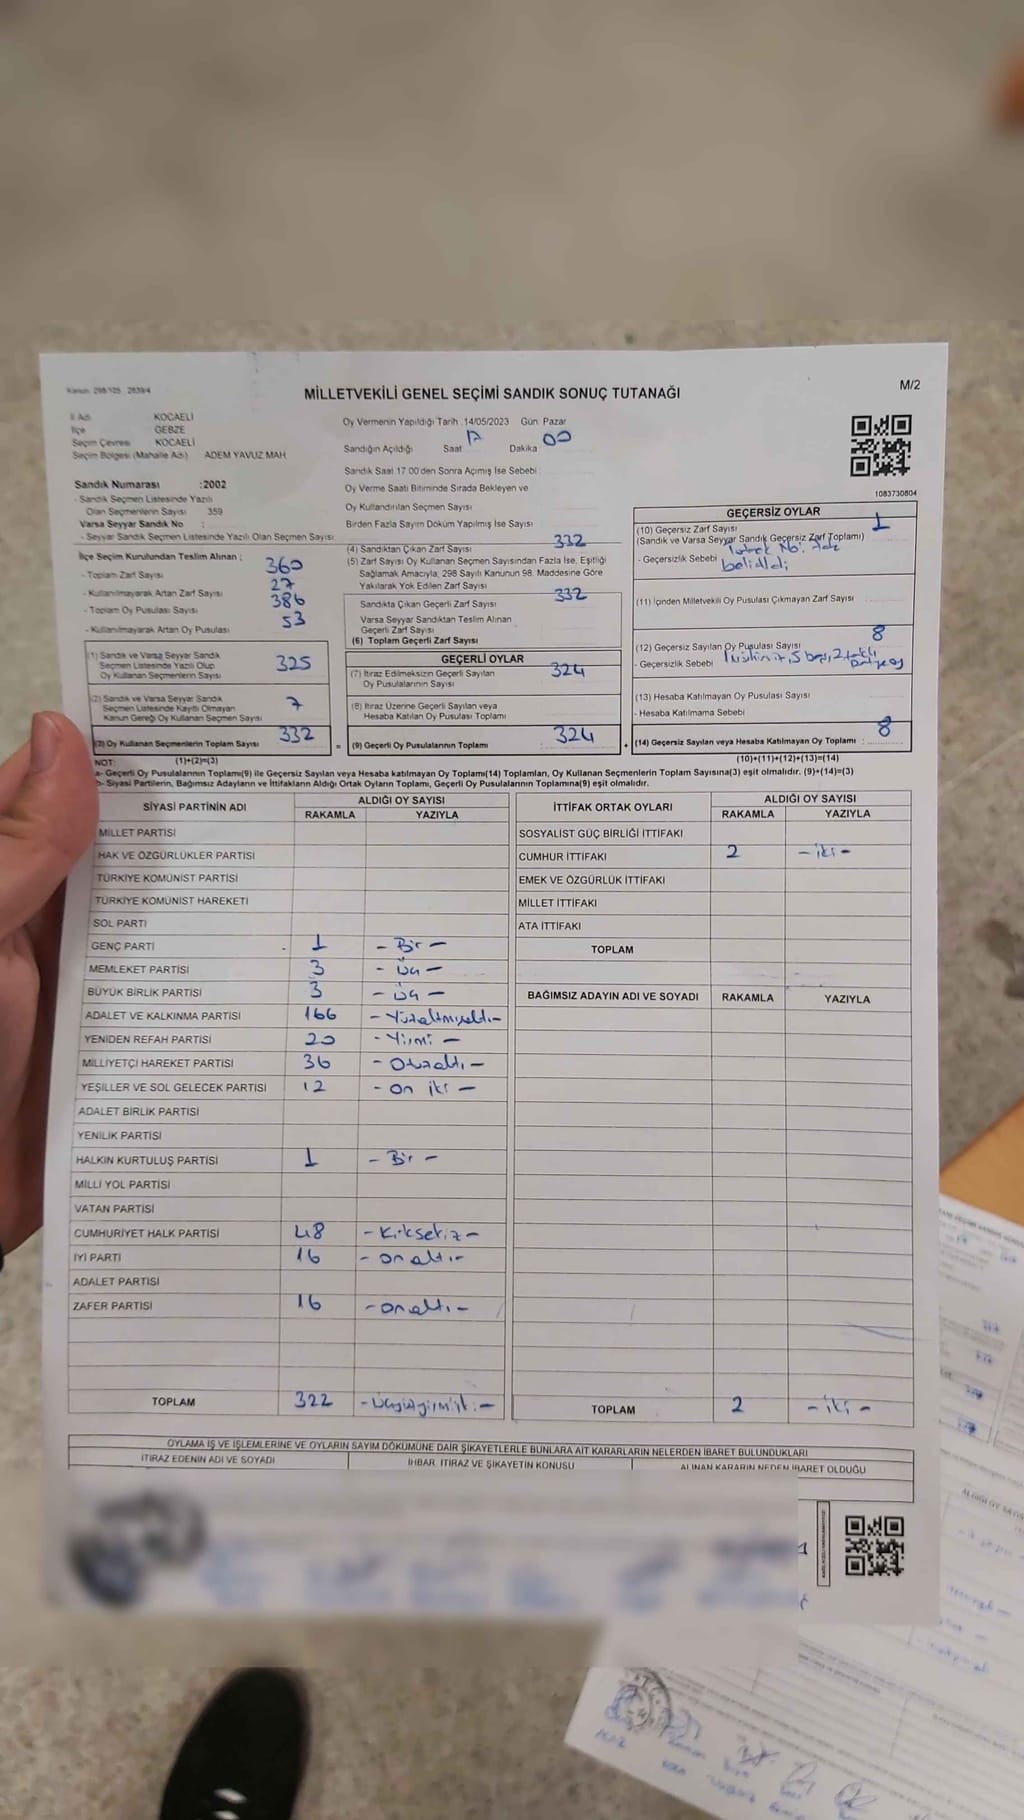 Kanun 298/105 2839/4
MİLLETVEKİLİ GENEL SEÇİMİ SANDIK SONUÇ TUTANAĞI
M/2
İl Adı KOCAELİ
İlçe GEBZE
Seçim Çevresi KOCAELİ
Seçim Bölgesi (Mahalle Adı) ADEM YAVUZ MAH
Sandık Numarası :2002
- Sandık Seçmen Listesinde Yazılı
Olan Seçmenlerin Sayısı 359
Varsa Seyyar Sandık No :
- Seyyar Sandık Seçmen Listesinde Yazılı Olan Seçmen Sayısı
Oy Vermenin Yapıldığı Tarih 14/05/2023 Gün Pazar
Sandığın Açıldığı Saat 17 Dakika 00
Sandık Saat 17.00'den Sonra Açımış İse Sebebi
Oy Verme Saati Bitiminde Sırada Bekleyen ve
Oy Kullandırılan Seçmen Sayısı
Birden Fazla Sayım Döküm Yapılmış İse Sayısı
1083730804
İlçe Seçim Kurulundan Teslim Alınan ;
- Toplam Zarf Sayısı 360
- Kullanılmayarak Artan Zarf Sayısı 27
- Toplam Oy Pusulası Sayısı 386
- Kullanılmayarak Artan Oy Pusulası 53
(1) Sandık ve Varsa Seyyar Sandık
Seçmen Listesinde Yazılı Olup
Oy Kullanan Seçmenlerin Sayısı 325
(2) Sandık ve Varsa Seyyar Sandık
Seçmen Listesinde Kayıtlı Olmayan
Kanun Gereği Oy Kullanan Seçmen Sayısı 7
(3) Oy Kullanan Seçmenlerin Toplam Sayısı 332
(4) Sandıktan Çıkan Zarf Sayısı 332
(5) Zarf Sayısı Oy Kullanan Seçmen Sayısından Fazla İse, Eşitliği
Sağlamak Amacıyla, 298 Sayılı Kanunun 98. Maddesine Göre
Yakılarak Yok Edilen Zarf Sayısı
Sandıkta Çıkan Geçerli Zarf Sayısı 332
Varsa Seyyar Sandıktan Teslim Alınan
Geçerli Zarf Sayısı
(6) Toplam Geçerli Zarf Sayısı
GEÇERLİ OYLAR
(7) İtiraz Edilmeksizin Geçerli Sayılan
Oy Pusulalarının Sayısı 324
(8) İtiraz Üzerine Geçerli Sayılan veya
Hesaba Katılan Oy Pusulası Toplamı
= (9) Geçerli Oy Pusulalarının Toplamı : 324
GEÇERSİZ OYLAR
(10) Geçersiz Zarf Sayısı 1
(Sandık ve Varsa Seyyar Sandık Geçersiz Zarf Toplamı)
- Geçersizlik Sebebi
(11) İçinden Milletvekili Oy Pusulası Çıkmayan Zarf Sayısı
(12) Geçersiz Sayılan Oy Pusulası Sayısı 8
- Geçersizlik Sebebi
(13) Hesaba Katılmayan Oy Pusulası Sayısı
- Hesaba Katılmama Sebebi
+ (14) Geçersiz Sayılan veya Hesaba Katılmayan Oy Toplamı : 8
NOT: (1)+(2)=(3)
(10)+(11)+(12)+(13)=(14)
a- Geçerli Oy Pusulalarının Toplamı(9) ile Geçersiz Sayılan veya Hesaba katılmayan Oy Toplamı(14) Toplamları, Oy Kullanan Seçmenlerin Toplam Sayısına(3) eşit olmalıdır. (9)+(14)=(3)
b- Siyasi Partilerin, Bağımsız Adayların ve İttifakların Aldığı Ortak Oyların Toplamı, Geçerli Oy Pusulalarının Toplamına(9) eşit olmalıdır.
SİYASİ PARTİNİN ADI ALDIĞI OY SAYISI
RAKAMLA YAZIYLA
MİLLET PARTİSİ
HAK VE ÖZGÜRLÜKLER PARTİSİ
TÜRKİYE KOMÜNİST PARTİSİ
TÜRKİYE KOMÜNİST HAREKETİ
SOL PARTİ
GENÇ PARTİ 1 - Bir -
MEMLEKET PARTİSİ 3 - Üç -
BÜYÜK BİRLİK PARTİSİ 3 - Üç -
ADALET VE KALKINMA PARTİSİ 166 - Yüzaltmışaltı -
YENİDEN REFAH PARTİSİ 20 - Yirmi -
MİLLİYETÇİ HAREKET PARTİSİ 36 - Otuzaltı -
YEŞİLLER VE SOL GELECEK PARTİSİ 12 - on iki -
ADALET BİRLİK PARTİSİ
YENİLİK PARTİSİ
HALKIN KURTULUŞ PARTİSİ 1 - Bir -
MİLLİ YOL PARTİSİ
VATAN PARTİSİ
CUMHURİYET HALK PARTİSİ 48 - Kırksekiz -
İYİ PARTİ 16 - on altı -
ADALET PARTİSİ
ZAFER PARTİSİ 16 - on altı -
TOPLAM 322 - üçyüzyirmiiki -
İTTİFAK ORTAK OYLARI ALDIĞI OY SAYISI
RAKAMLA YAZIYLA
SOSYALİST GÜÇ BİRLİĞİ İTTİFAKI
CUMHUR İTTİFAKI 2 - iki -
EMEK VE ÖZGÜRLÜK İTTİFAKI
MİLLET İTTİFAKI
ATA İTTİFAKI
TOPLAM
BAĞIMSIZ ADAYIN ADI VE SOYADI RAKAMLA YAZIYLA
TOPLAM 2 - iki -
OYLAMA İŞ VE İŞLEMLERİNE VE OYLARIN SAYIM DÖKÜMÜNE DAİR ŞİKAYETLERLE BUNLARA AİT KARARLARIN NELERDEN İBARET BULUNDUKLARI
İTİRAZ EDENİN ADI VE SOYADI İHBAR, İTİRAZ VE ŞİKAYETİN KONUSU ALINAN KARARIN NEDEN İBARET OLDUĞU